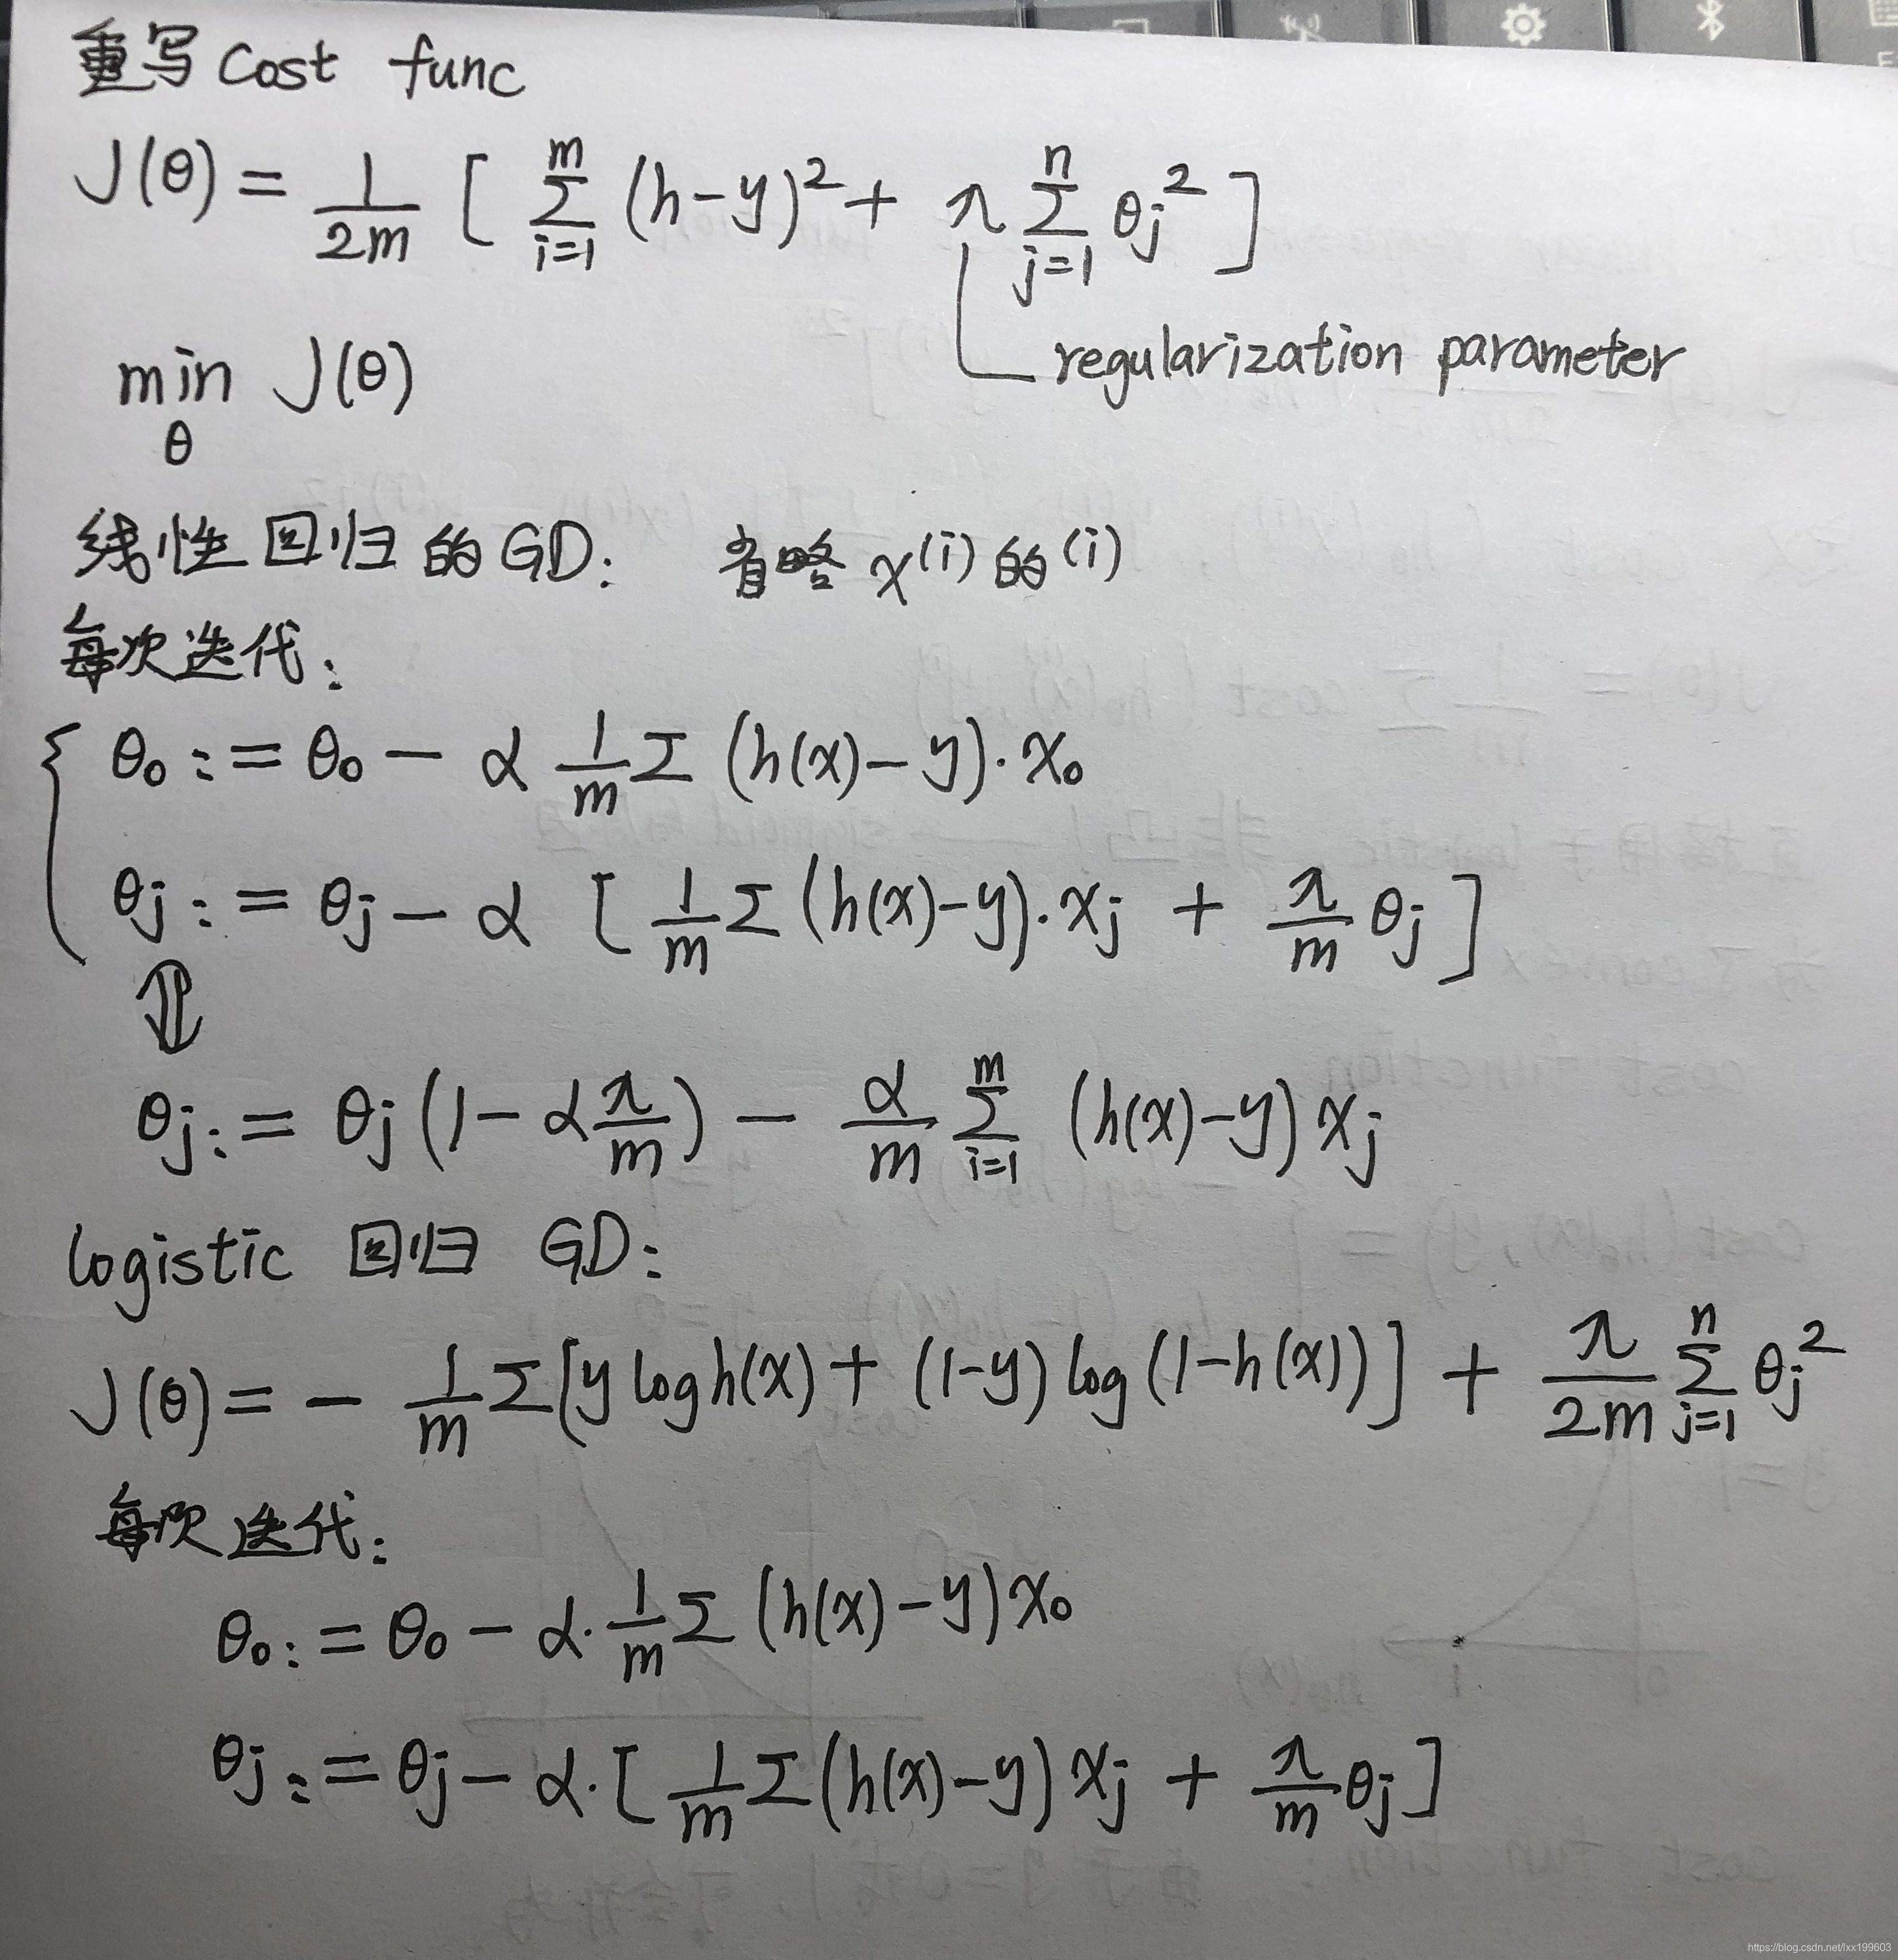 重写 Cost func
J(θ) = 1/2m [ Σ_{i=1}^{m} (h-y)² + λ Σ_{j=1}^{n} θj² ]
regularization parameter
min_θ J(θ)
线性回归的GD: 省略 x^(i) 的^(i)
每次迭代:
{ θ₀ := θ₀ - α 1/m Σ (h(x)-y)·x₀
θj := θj - α [ 1/m Σ (h(x)-y)·xj + λ/m θj ]
⇕
θj := θj (1 - α λ/m) - α/m Σ_{i=1}^{m} (h(x)-y) xj
logistic 回归 GD:
J(θ) = - 1/m Σ [y log h(x) + (1-y) log (1-h(x))] + λ/2m Σ_{j=1}^{n} θj²
每次迭代:
θ₀ := θ₀ - α· 1/m Σ (h(x)-y) x₀
θj := θj - α· [ 1/m Σ (h(x)-y) xj + λ/m θj ]
https://blog.csdn.net/lxx199603